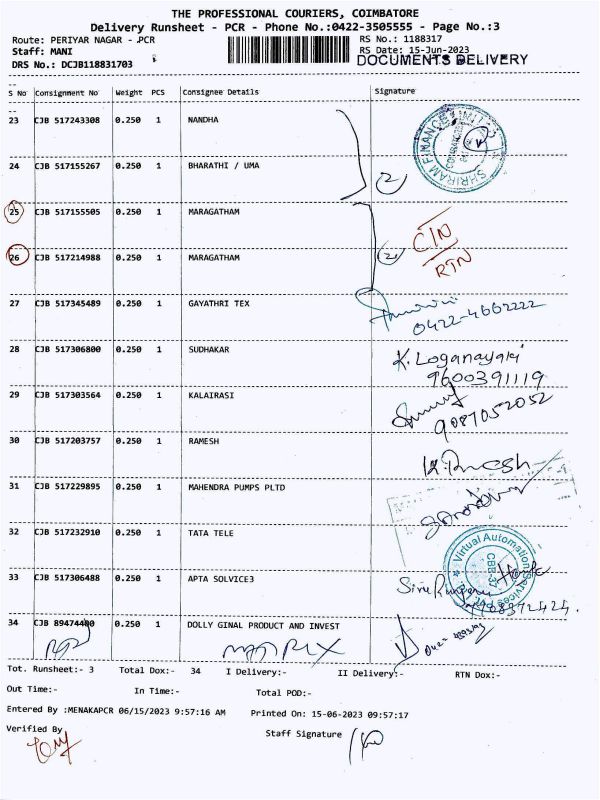 THE PROFESSIONAL COURIERS, COIMBATORE
Delivery Runsheet - PCR - Phone No.:0422-3505555 - Page No.:3
Route: PERIYAR NAGAR - PCR
RS No.: 1188317
Staff: MANI
RS Date: 15-Jun-2023
DRS No.: DCJB118831703
DOCUMENTS DELIVERY
S No Consignment No Weight PCS Consignee Details Signature
23 CJB 517243308 0.250 1 NANDHA
SHRIRAM FINANCE LIMITED
24 CJB 517155267 0.250 1 BHARATHI / UMA
2
25 CJB 517155505 0.250 1 MARAGATHAM
C/N
RTN
26 CJB 517214988 0.250 1 MARAGATHAM
2
27 CJB 517345489 0.250 1 GAYATHRI TEX
0422-4662222
28 CJB 517306800 0.250 1 SUDHAKAR
K. Loganayaki
9600391119
29 CJB 517303564 0.250 1 KALAIRASI
9087052052
30 CJB 517203757 0.250 1 RAMESH
K. Ramesh
31 CJB 517229895 0.250 1 MAHENDRA PUMPS PLTD
32 CJB 517232910 0.250 1 TATA TELE
Virtual Automation Services
CBE-37
33 CJB 517306488 0.250 1 APTA SOLVICE3
34 CJB 89474400 0.250 1 DOLLY GINAL PRODUCT AND INVEST
MATRIX
Tot. Runsheet:- 3 Total Dox:- 34 I Delivery:- II Delivery:- RTN Dox:-
Out Time:- In Time:- Total POD:-
Entered By :MENAKAPCR 06/15/2023 9:57:16 AM Printed On: 15-06-2023 09:57:17
Verified By
Staff Signature